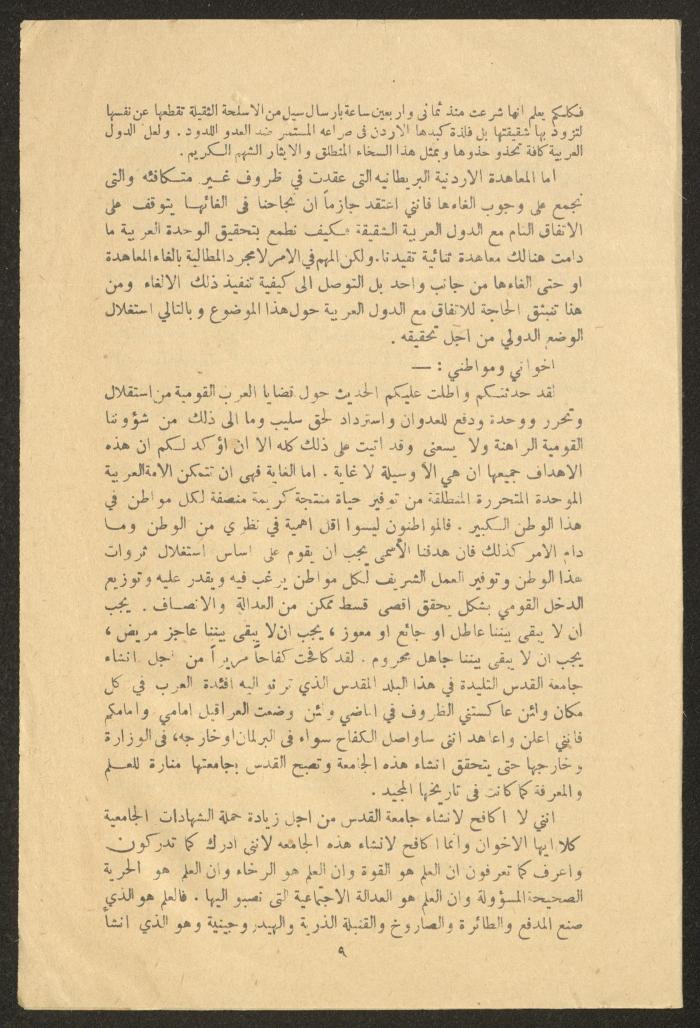 فكلكم يعلم انها شرعت منذ ثمانى واربعين ساعة بارسال سيل من الاسلحة الثقيلة تقطعها عن نفسها
لتزود بها شقيقتها بل فلذة كبدها الاردن فى صراعه المستمر ضد العدو اللدود . ولعل الدول
العربية كافة تحذو حذوها وبمثل هذا السخاء المنطلق والايثار الشهم الكريم .
اما المعاهدة الاردنية البريطانيه التى عقدت في ظروف غير متكافئه والتى
نجمع على وجوب الغاءها فانني اعتقد جازماً ان نجاحنا فى الغائها يتوقف على
الاتفاق التام مع الدول العربية الشقيقة فكيف نطمع بتحقيق الوحدة العربية ما
دامت هنالك معاهدة ثنائية تقيدنا. ولكن المهم فى الامر لا مجرد المطالبة بالغاء المعاهدة
او حتى الغاءها من جانب واحد بل التوصل الى كيفية تنفيذ ذلك الالغاء ومن
هنا تنبثق الحاجة للاتفاق مع الدول العربية حول هذا الموضوع وبالتالي استغلال
الوضع الدولي من اجل تحقيقه .
اخواني ومواطني : —
لقد حدثتكم واطلت عليكم الحديث حول قضايا العرب القومية من استقلال
وتحرر ووحدة ودفع للعدوان واسترداد لحق سليب وما الى ذلك من شؤوننا
القومية الراهنة ولا يسعنى وقد اتيت على ذلك كله الا ان اؤكد لكم ان هذه
الاهداف جميعها ان هي الا وسيلة لا غاية . اما الغاية فهى ان تتمكن الامة العربية
الموحدة المتحررة المنطلقة من توفير حياة منتجة كريمة منصفة لكل مواطن في
هذا الوطن الكبير . فالمواطنون ليسوا اقل اهمية في نظري من الوطن وما
دام الامر كذلك فان هدفنا الأسمى يجب ان يقوم على اساس استغلال ثروات
هذا الوطن وتوفير العمل الشريف لكل مواطن يرغب فيه ويقدر عليه وتوزيع
الدخل القومي بشكل يحقق اقصى قسط ممكن من العدالة والانصاف . يجب
ان لا يبقى بيننا عاطل او جائع او معوز ، يجب ان لا يبقى بيننا عاجز مريض ،
يجب ان لا يبقى بيننا جاهل محروم . لقد كافحت كفاحاً مريراً من اجل انشاء
جامعة القدس التليدة في هذا البلد المقدس الذي ترنو اليه افئدة العرب في كل
مكان ولئن عاكستني الظروف في الماضي ولئن وضعت العراقيل امامي وامامكم
فانني اعلن واعاهد اننى ساواصل الكفاح سواء فى البرلمان او خارجه، فى الوزارة
وخارجها حتى يتحقق انشاء هذه الجامعة وتصبح القدس بجامعتها منارة للعلم
والمعرفة كما كانت فى تاريخها المجيد .
انني لا اكافح لانشاء جامعة القدس من اجل زيادة حملة الشهادات الجامعية
كلا ايها الاخوان وانما اكافح لانشاء هذه الجامعه لاننى ادرك كما تدركون
واعرف كما تعرفون ان العلم هو القوة وان العلم هو الرخاء وان العلم هو الحرية
الصحيحة المسؤولة وان العلم هو العدالة الاجتماعية التى نصبو اليها . فالعلم هو الذي
صنع المدفع والطائرة والصاروخ والقنبلة الذرية والهيدروجينية وهو الذي انشأ
٩